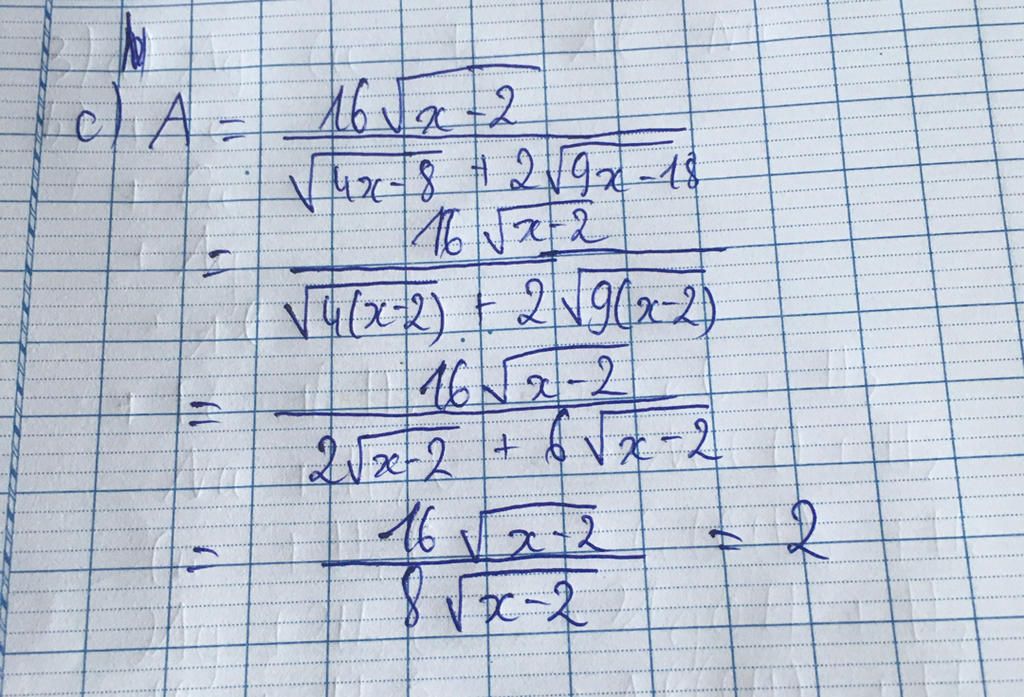 c) A = \frac{16\sqrt{x-2}}{\sqrt{4x-8} + 2\sqrt{9x-18}}
= \frac{16\sqrt{x-2}}{\sqrt{4(x-2)} + 2\sqrt{9(x-2)}}
= \frac{16\sqrt{x-2}}{2\sqrt{x-2} + 6\sqrt{x-2}}
= \frac{16\sqrt{x-2}}{8\sqrt{x-2}} = 2